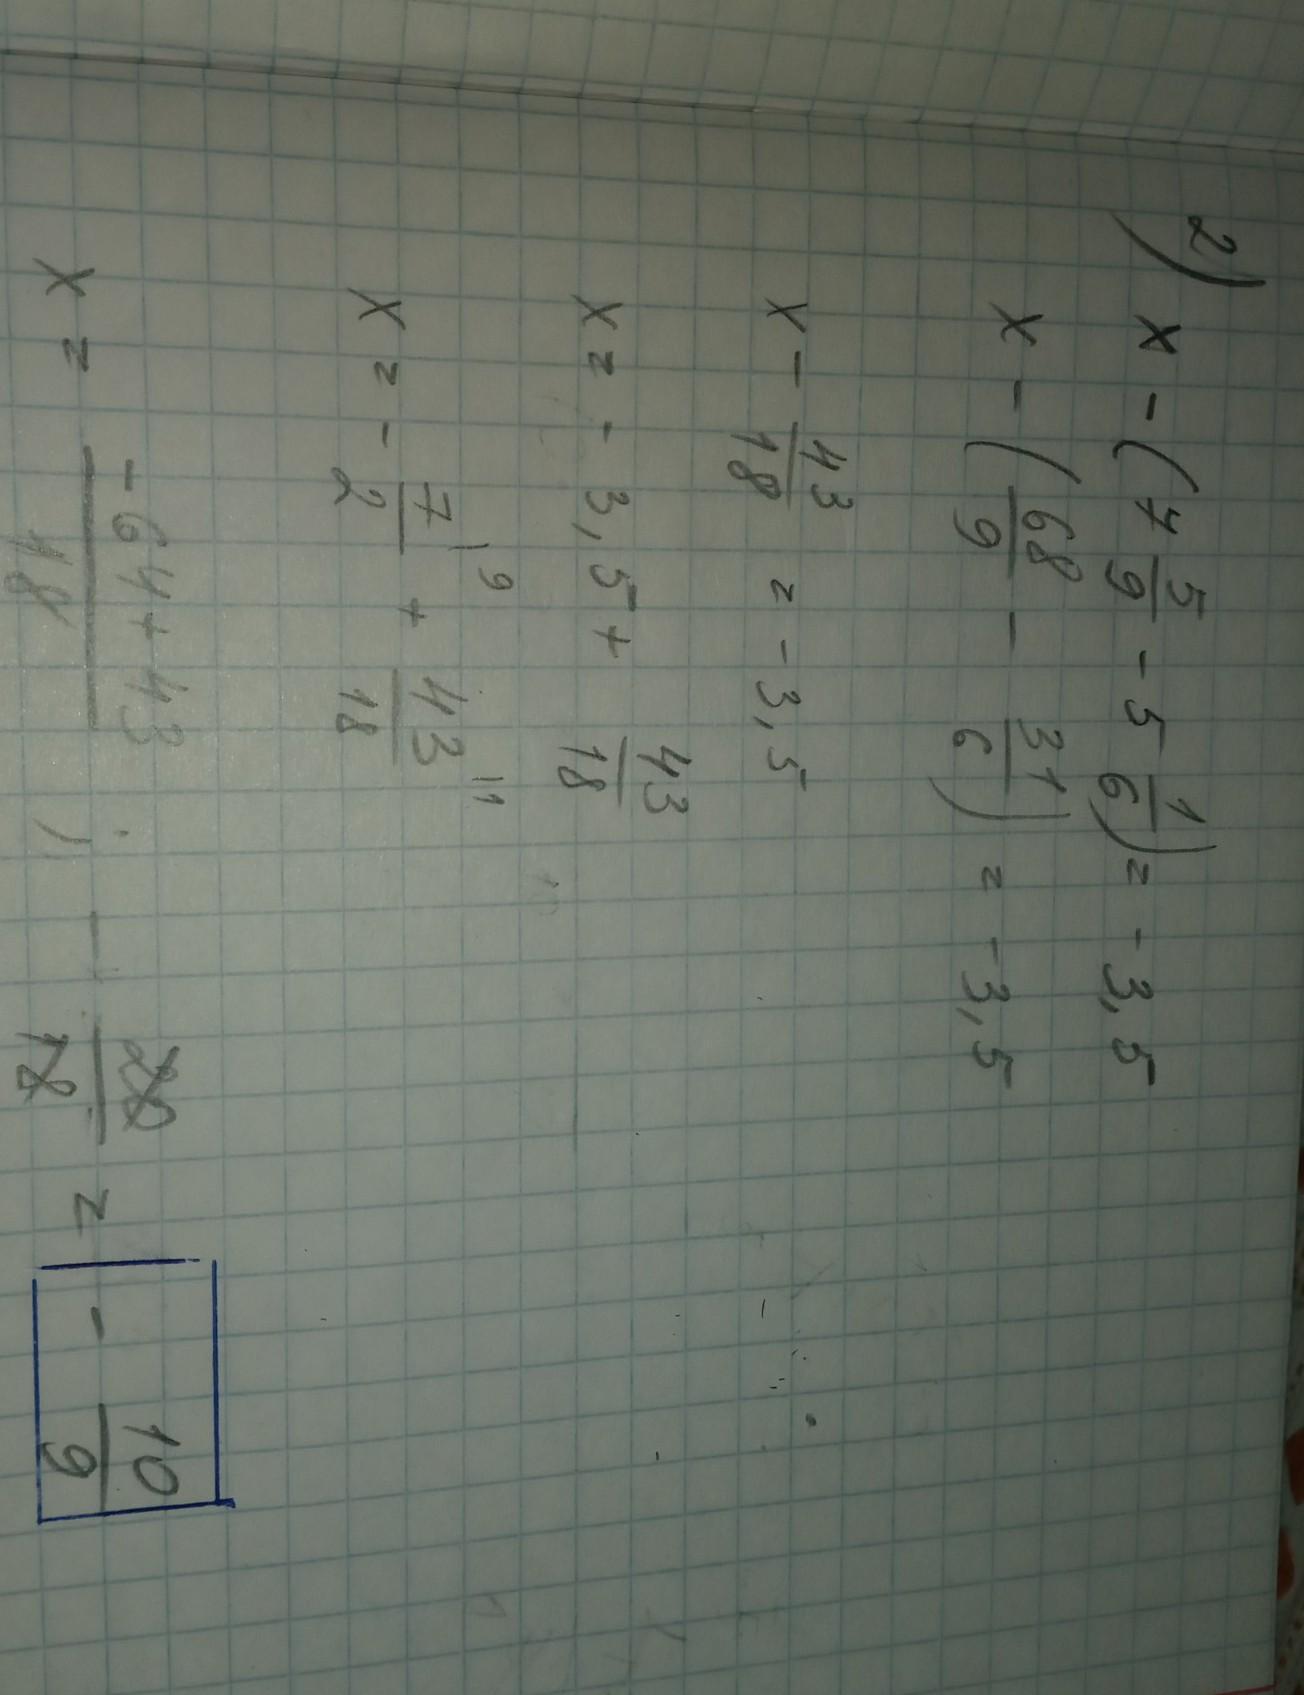 2) x - (7 5/9 - 5 1/6) = -3,5
x - (68/9 - 31/6) = -3,5
x - 43/18 = -3,5
x = -3,5 + 43/18
x = - 7/2 |9 + 43/18 |1
x = (-64 + 43)/18 = - 20/18 = - 10/9